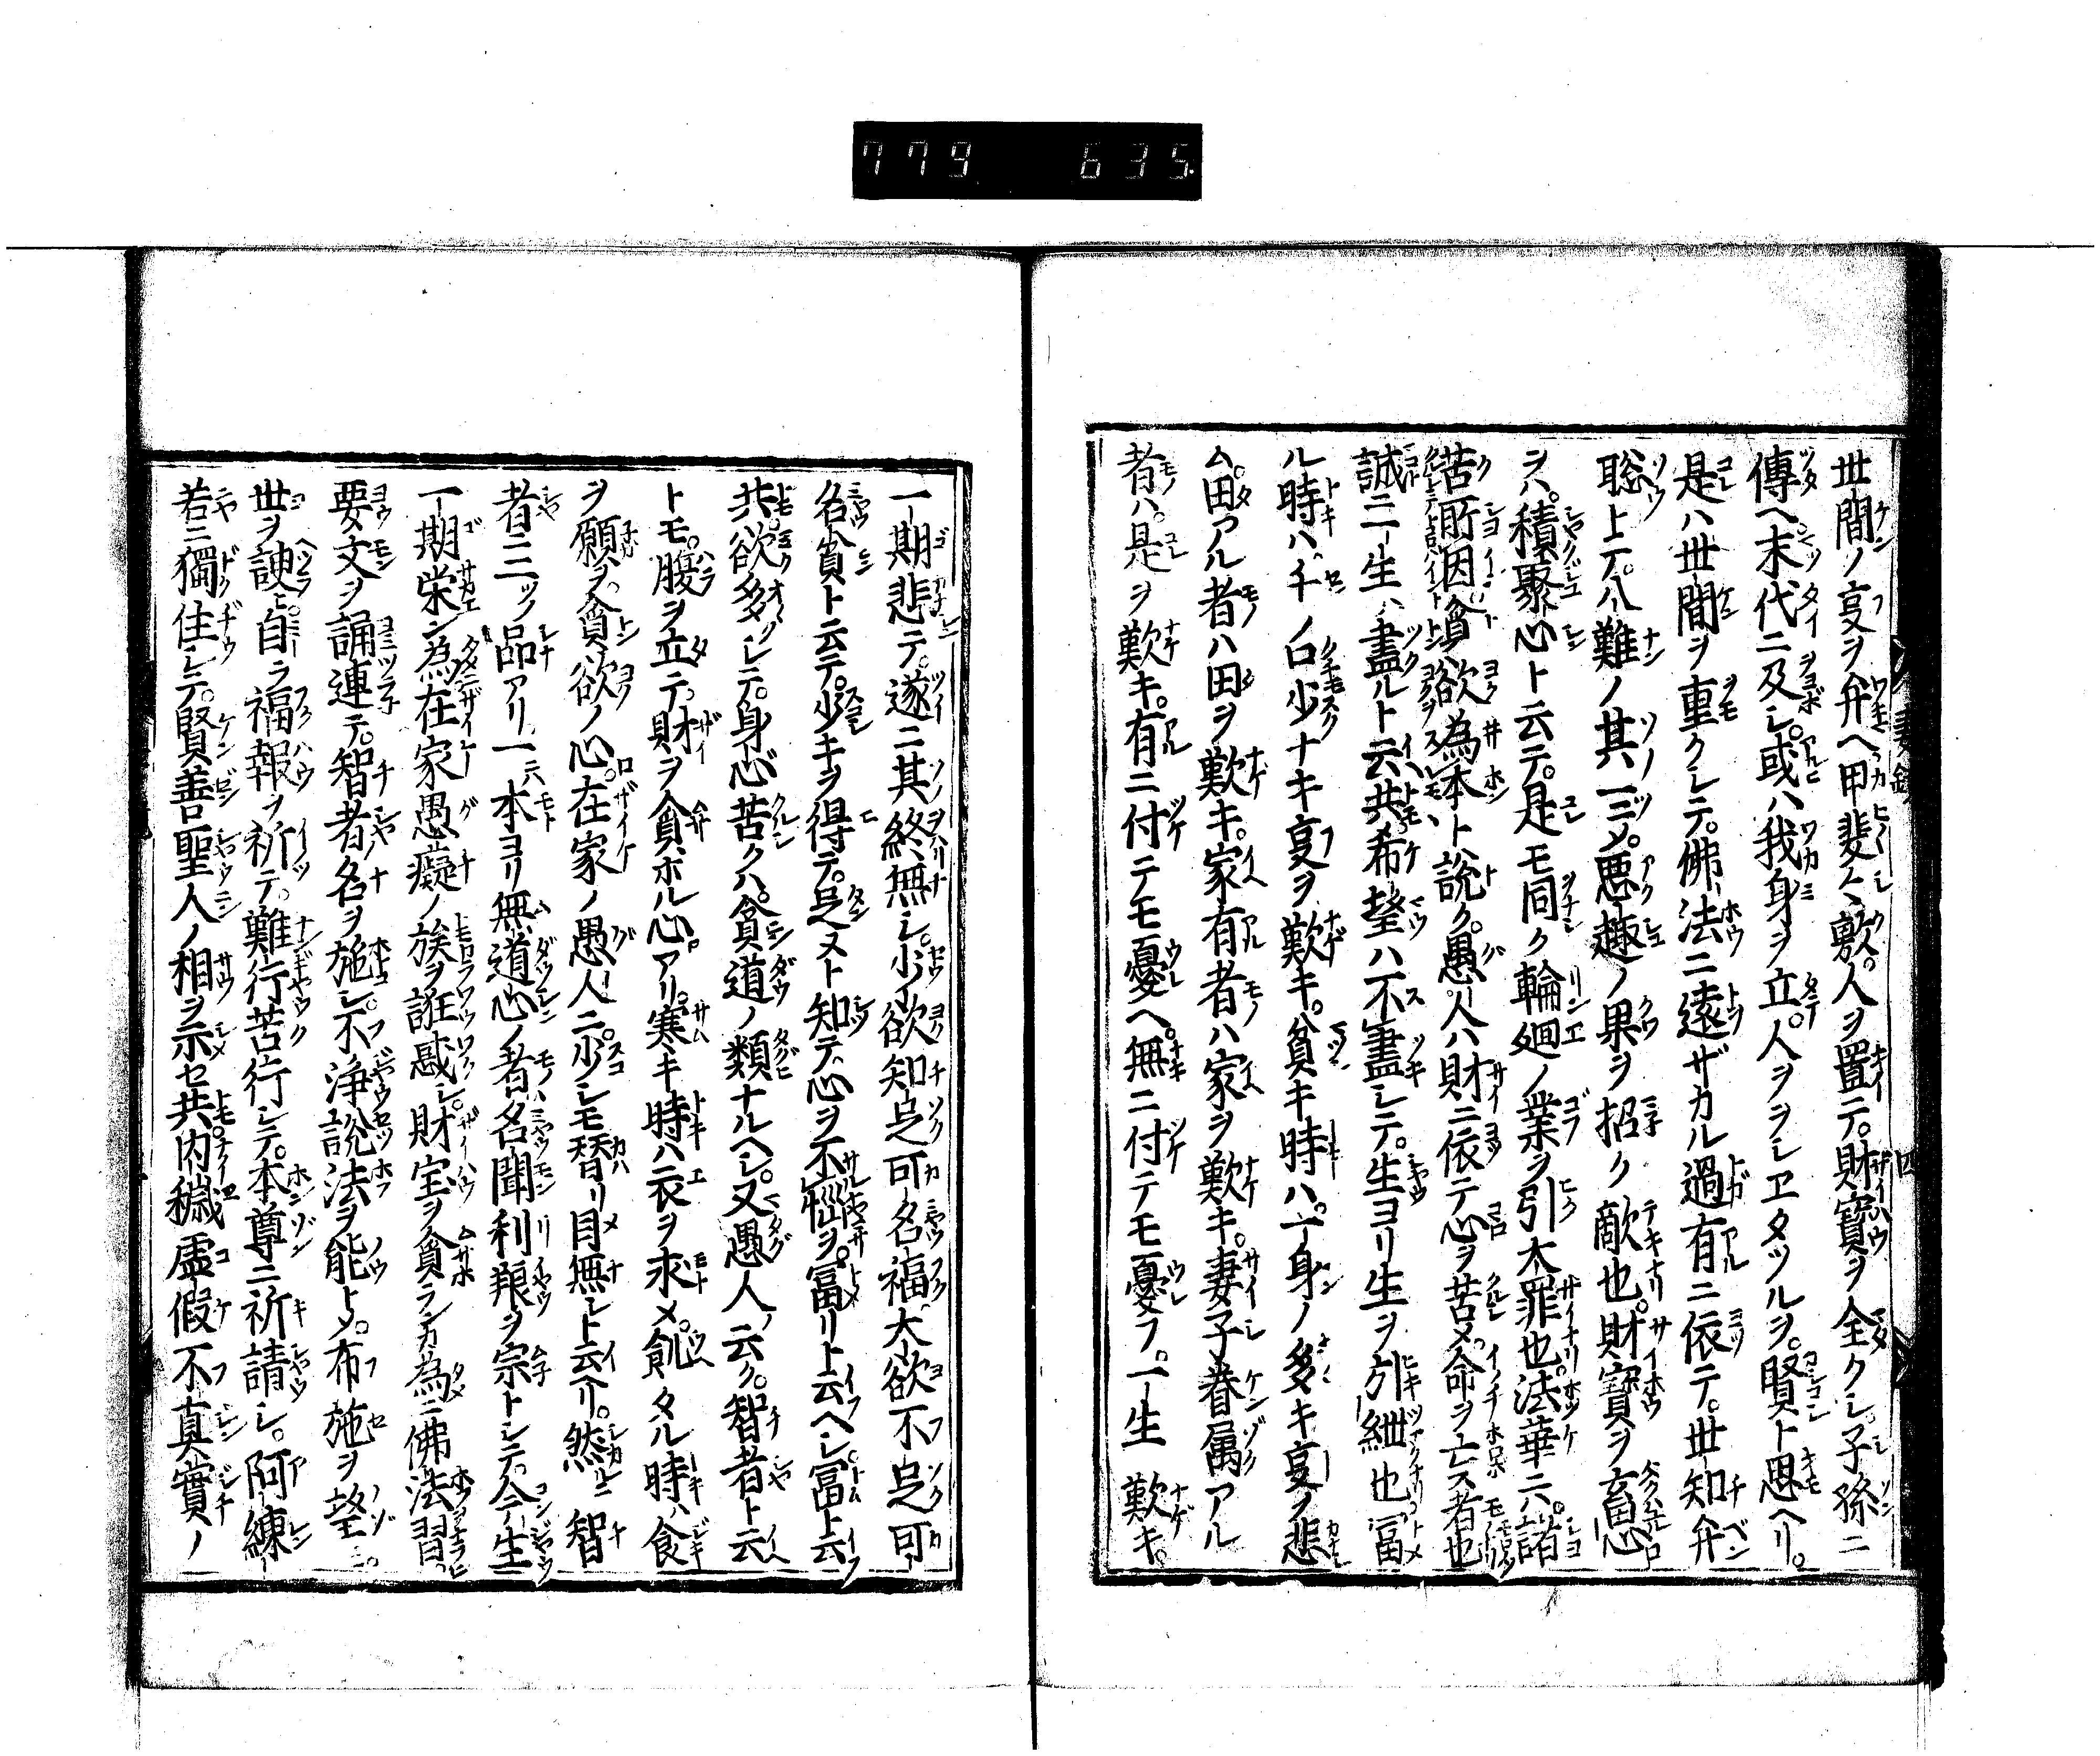 779 635
世間ノ事ヲ弁ヘ甲斐々敷。人ヲ置テ。財寶ヲ全クシ。子孫ニ
傳ヘ末代ニ及シ。或ハ我身ヲ立。人ヲヲシヱタツルヲ。賢ト思ヘリ。
是ハ世間ヲ重クシテ。佛法ニ遠ザカル過有ニ依テ。世知弁
聡トテ。八難ノ其一ツ。悪趣ノ果ヲ招ク敵也。財寶ヲ畜心
ヲハ。積聚心ト云テ。是モ同ク輪廻ノ業ヲ引大罪也。法華ニハ。諸
苦所因貪欲為本ト説ク。愚人ハ財ニ依テ心ヲ苦メ。命ヲ亡ス者也
誠ニ一生ハ盡ルト云共。希望ハ不盡シテ。生ヨリ生ヲ引紲也。冨
ル時ハ。千ノ口少ナキ事ヲ歎キ。貧キ時ハ。一身ノ多キ事ヲ悲
ム。田アル者ハ田ヲ歎キ。家有者ハ家ヲ歎キ。妻子眷属アル
者ハ。是ヲ歎キ。有ニ付テモ憂ヘ。無ニ付テモ憂フ。一生歎キ。
一期悲テ。遂ニ其終無シ。少欲知足可名福。大欲不足可
名貧ト云テ。少キヲ得テ。足ヌト知テ心ヲ不悩ヲ。冨リト云ヘシ。冨ト云
共。欲多クシテ。身心苦クハ。貧道ノ類ナルヘシ。又愚人ノ云ク。智者ト云
トモ。腹ヲ立テ。財ヲ貪ホル心アリ。寒キ時ハ衣ヲ求メ。飢タル時ハ食
ヲ願フ。貪欲ノ心。在家ノ愚人ニ。少シモ替リ目無シト云ヘリ。然ルニ智
者ニ三ツノ品アリ。一ニハ本ヨリ無道心ノ者ハ名聞利粮ヲ宗トシテ。今生
一期栄ン為。在家愚癡ノ族ヲ誑惑シ。財宝ヲ貪ランカ為ニ佛法習ヒ
要文ヲ誦連テ。智者ノ名ヲ施シ。不浄説法ヲ能トメ。布施ヲ望ミ。
世ヲ諛ヒ。自ラ福報ヲ祈テ。難行苦行シテ。本尊ニ祈請シ。阿練
若ニ獨住シテ。賢善聖人ノ相ヲ示セ共。内穢虚假不真實ノ